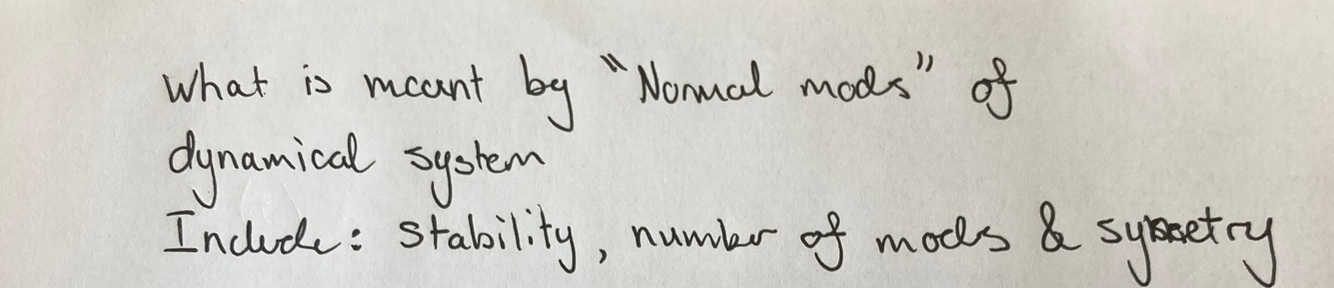 What is meant by "Normal mods" of
dynamical system
Include: stability, number of mods & symmetry